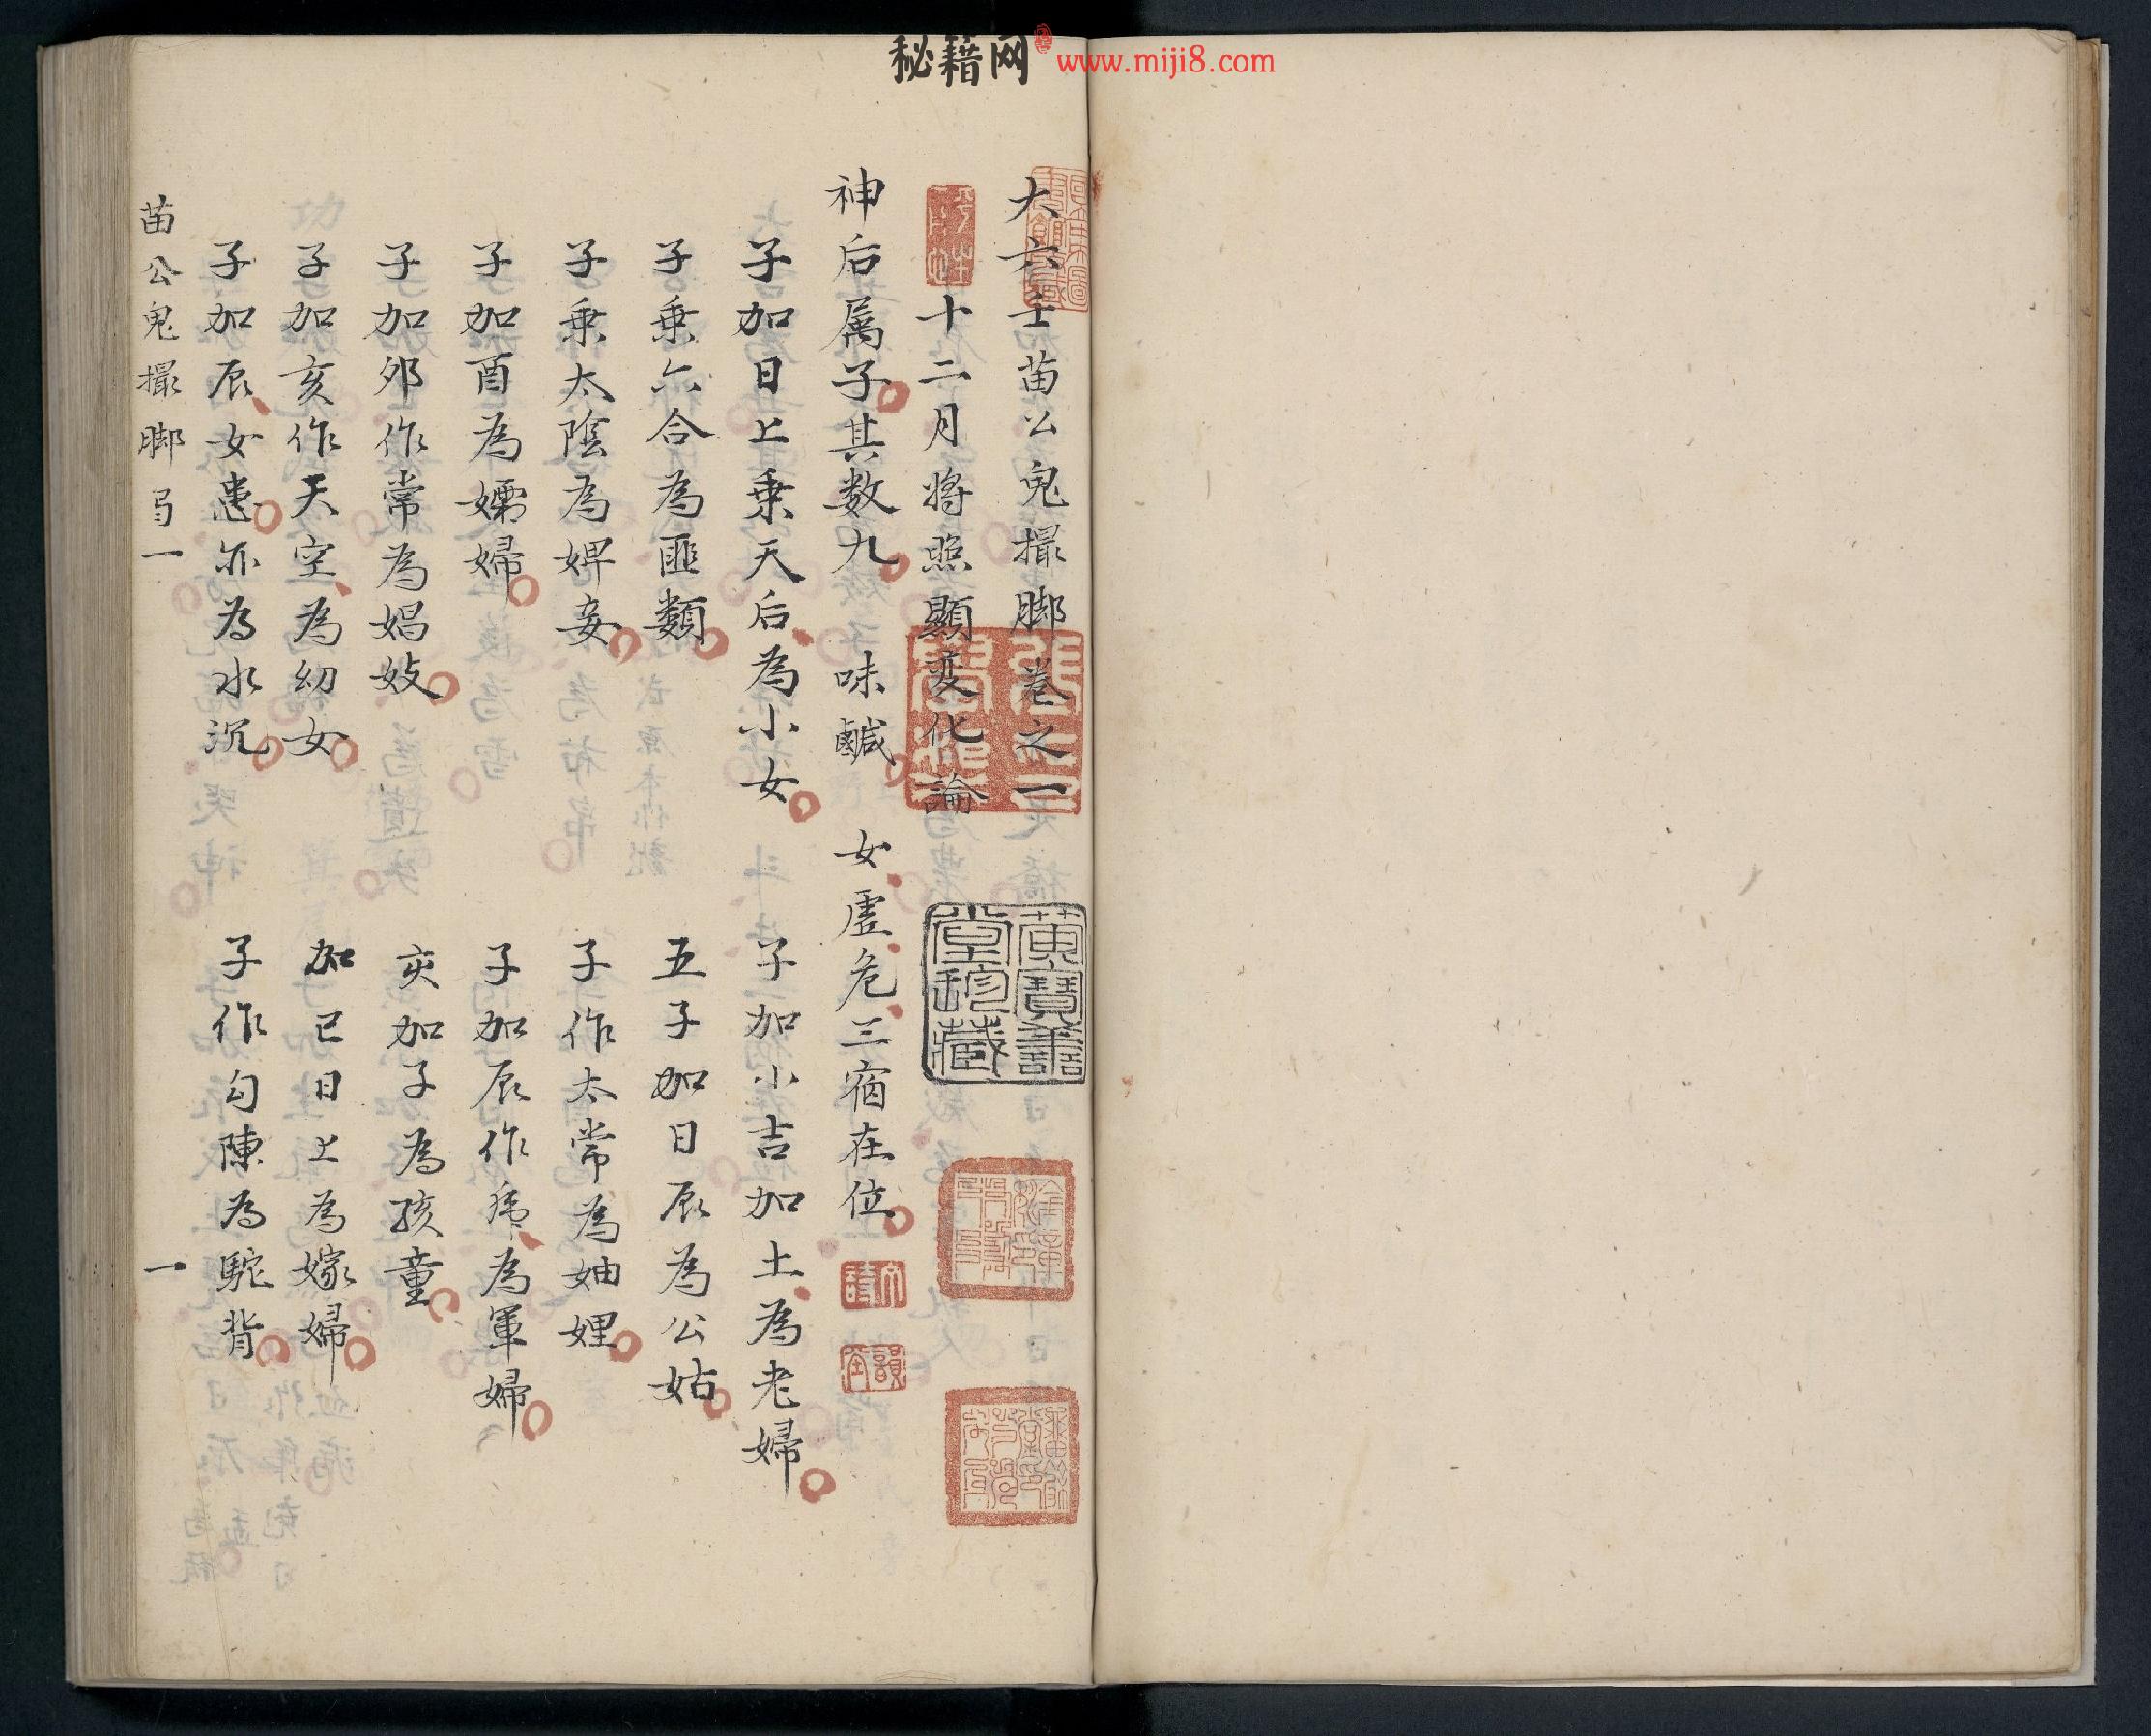 秘籍网 www.miji8.com
大六壬苗公鬼撮脚卷之一
十二月將照顯变化論
神后属子其数九 味鹹 女虚危三宿在位
子加日上乗天后為小女 子加小吉加土為老婦
子乗六合為匪類 五子加日辰為公姑
子乗太陰為婢妾 子作太常為妯娌
子加酉為孀婦 子加辰作虎為軍婦
子加夘作常為娼妓 亥加子為孩童
子加亥作天空為幼女 加已日上為嫁婦
子加辰女患亦為水沉 子作勾陳為駝背
苗公鬼撮脚 一 一
黄寶善堂珍藏